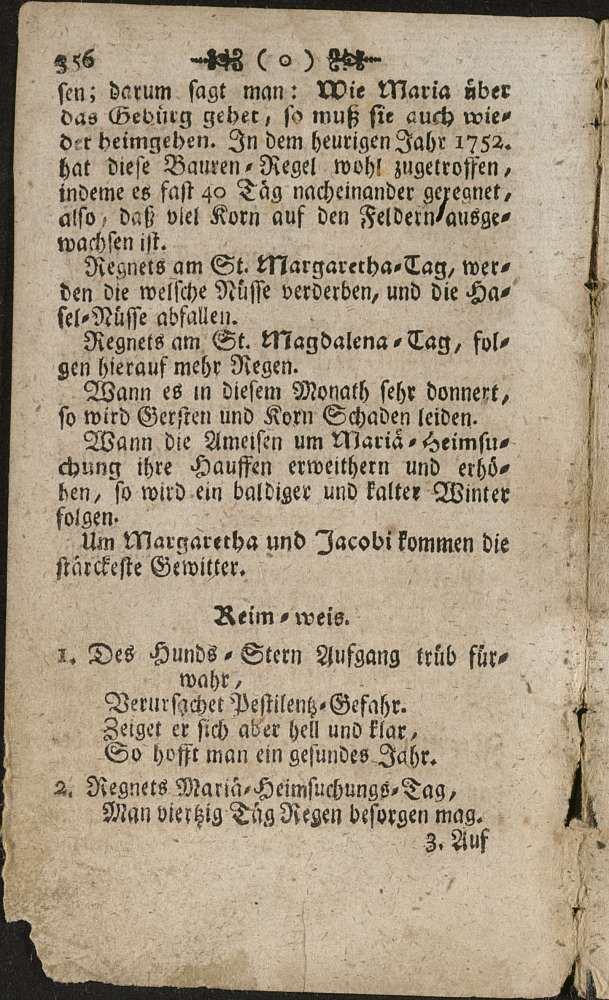 356 ( o )
sen; darum sagt man: Wie Maria über
das Gebürg gehet, so muß sie auch wie-
der heimgehen. In dem heurigen Jahr 1752.
hat diese Bauren-Regel wohl zugetroffen,
indeme es fast 40 Täg nacheinander geregnet,
also, daß viel Korn auf den Feldern ausge-
wachsen ist.
Regnets am St. Margaretha-Tag, wer-
den die welsche Nüsse verderben, und die Ha-
sel-Nüsse abfallen.
Regnets am St. Magdalena-Tag, fol-
gen hierauf mehr Regen.
Wann es in diesem Monath sehr donnert,
so wird Gersten und Korn Schaden leiden.
Wann die Ameisen um Mariä-Heimsu-
chung ihre Hauffen erweithern und erhö-
hen, so wird ein baldiger und kalter Winter
folgen.
Um Margaretha und Jacobi kommen die
stärckeste Gewitter.
Reim-weis.
1. Des Hunds-Stern Aufgang trüb für-
wahr,
Verursachet Pestilentz-Gefahr.
Zeiget er sich aber hell und klar,
So hofft man ein gesundes Jahr.
2. Regnets Mariä-Heimsuchungs-Tag,
Man viertzig Täg Regen besorgen mag.
3. Auf